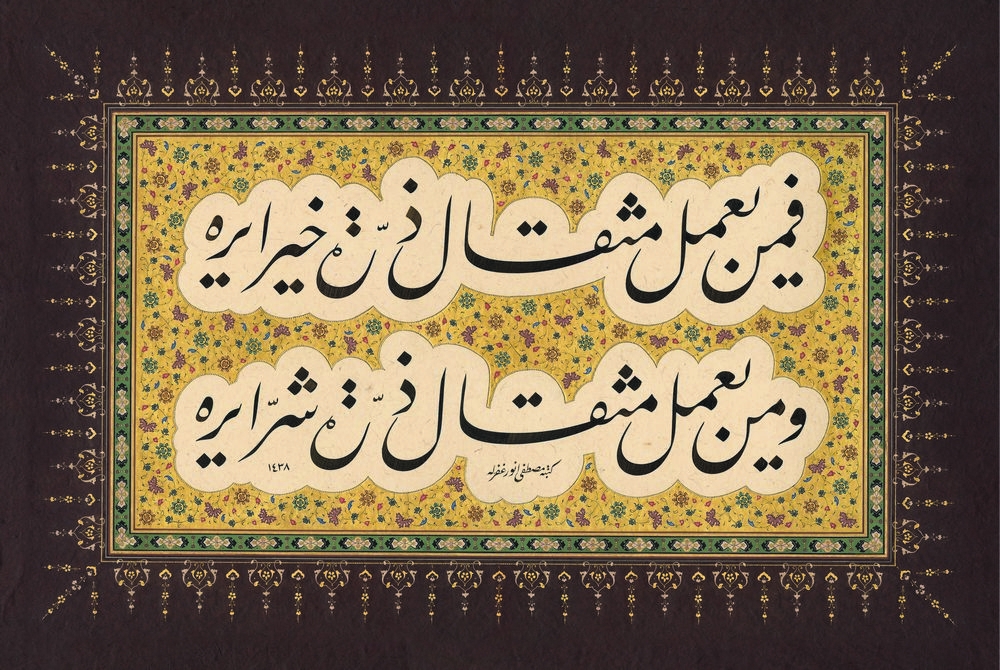 فمن يعمل مثقال ذرّة خيرا يره
ومن يعمل مثقال ذرّة شرّا يره
كتبه مصطفى انور غفرله
١٤٣٨